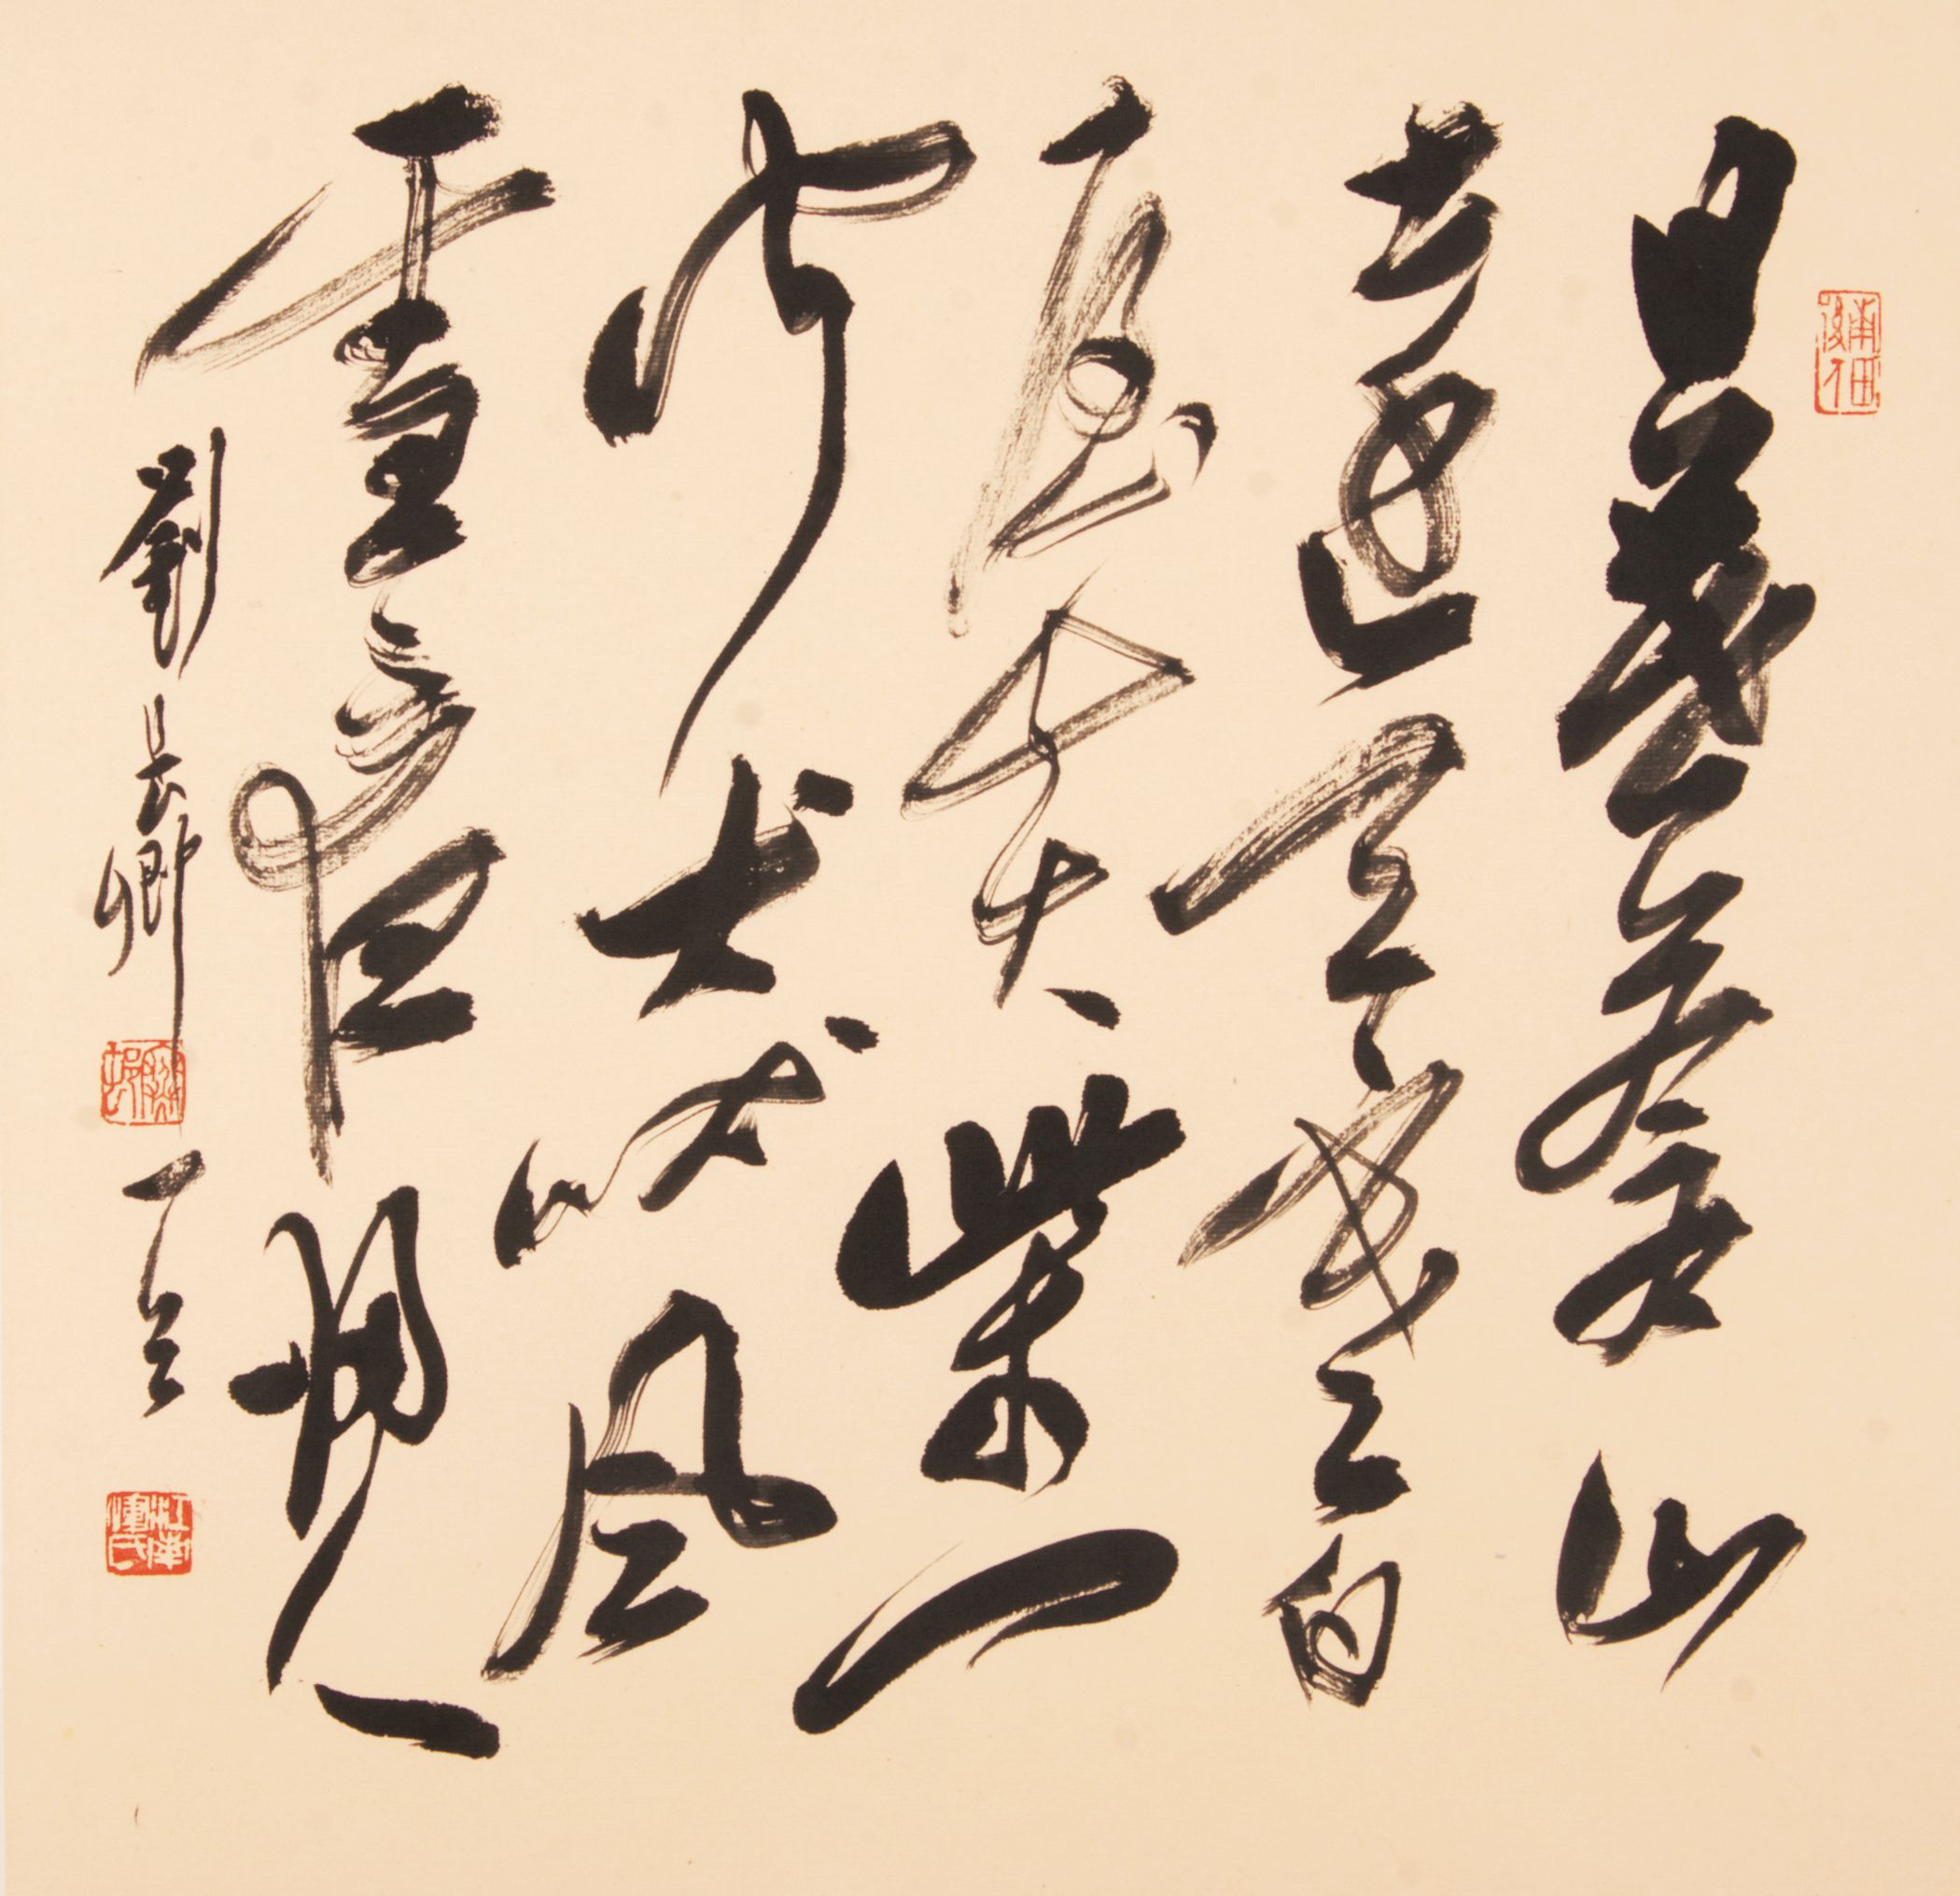 日暮蒼山
遠天寒白
屋貧柴門
聞犬吠風
雪夜歸人
劉長卿
江南惲氏